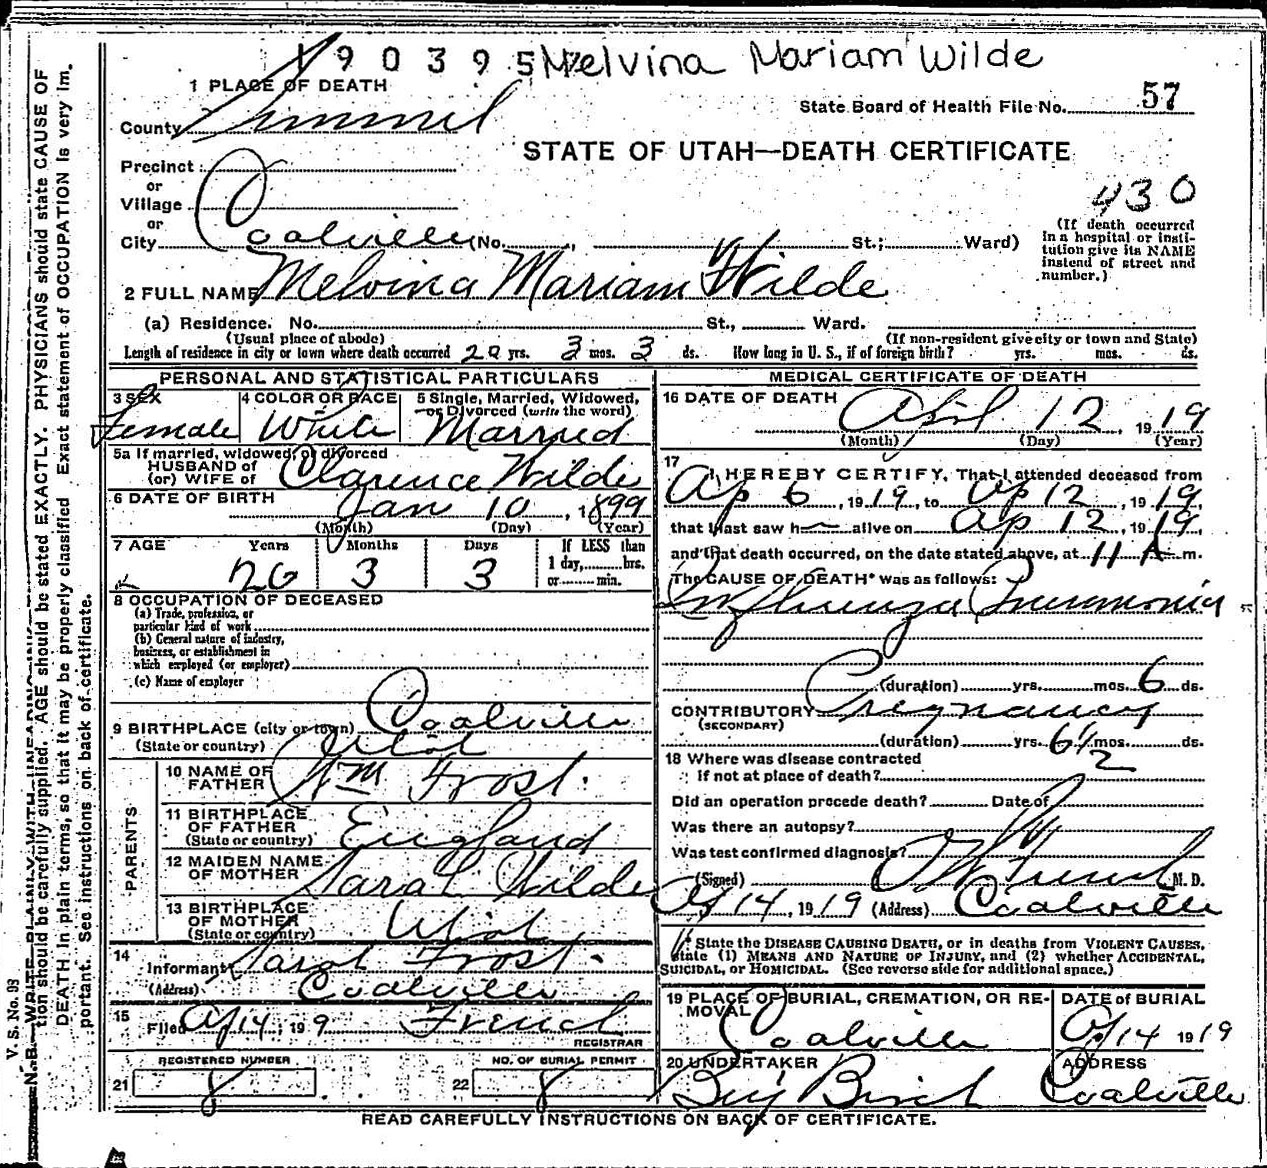 1903957 Melvina Mariam Wilde
1 PLACE OF DEATH
State Board of Health File No. 57
County Summit
STATE OF UTAH—DEATH CERTIFICATE
Precinct
or
Village
or
City Coalville (No. St.; Ward)
430
(If death occurred in a hospital or institution give its NAME instead of street and number.)
2 FULL NAME Melvina Mariam Wilde
(a) Residence. No. St., Ward.
(Usual place of abode) (If non-resident give city or town and State)
Length of residence in city or town where death occurred 20 yrs. 3 mos. 3 ds. How long in U. S., if of foreign birth? yrs. mos. ds.
PERSONAL AND STATISTICAL PARTICULARS
3 SEX Female
4 COLOR OR RACE White
5 Single, Married, Widowed, or Divorced (write the word) Married
5a If married, widowed, or divorced
HUSBAND of
(or) WIFE of Clarence Wilde
6 DATE OF BIRTH Jan 10, 1899
(Month) (Day) (Year)
7 AGE Years Months Days If LESS than
20 3 3 1 day, hrs.
or min.
8 OCCUPATION OF DECEASED
(a) Trade, profession, or
particular kind of work
(b) General nature of industry,
business, or establishment in
which employed (or employer)
(c) Name of employer
9 BIRTHPLACE (city or town) Coalville
(State or country) Utah
PARENTS
10 NAME OF FATHER Wm Frost.
11 BIRTHPLACE OF FATHER
(State or country) England
12 MAIDEN NAME OF MOTHER Sarah Wilde
13 BIRTHPLACE OF MOTHER
(State or country) Utah
14
Informant Sarah Frost.
(Address) Coalville
15
Filed Ap 14, 19 9 French
REGISTRAR
REGISTERED NUMBER NO. OF BURIAL PERMIT
21 8 22 8
MEDICAL CERTIFICATE OF DEATH
16 DATE OF DEATH April 12, 1919
(Month) (Day) (Year)
17
I HEREBY CERTIFY, That I attended deceased from
Ap 6, 1919, to Ap 12, 1919,
that I last saw h alive on Ap 12, 1919,
and that death occurred, on the date stated above, at 11 A m.
The CAUSE OF DEATH* was as follows:
Influenza Pneumonia
(duration) yrs. mos. 6 ds.
CONTRIBUTORY Pregnancy
(SECONDARY)
(duration) yrs. 6 1/2 mos. ds.
18 Where was disease contracted
if not at place of death?
Did an operation precede death? Date of
Was there an autopsy?
Was test confirmed diagnosis?
(Signed) French M. D.
Ap 14, 1919 (Address) Coalville
* State the DISEASE CAUSING DEATH, or in deaths from VIOLENT CAUSES,
state (1) MEANS AND NATURE OF INJURY, and (2) whether ACCIDENTAL,
SUICIDAL, or HOMICIDAL. (See reverse side for additional space.)
19 PLACE OF BURIAL, CREMATION, OR REMOVAL DATE of BURIAL
Coalville Ap 14 1919
20 UNDERTAKER ADDRESS
Coalville
READ CAREFULLY INSTRUCTIONS ON BACK OF CERTIFICATE.
V. S. No. 93
N. B.—WRITE PLAINLY WITH
tion should be carefully supplied. AGE should be stated EXACTLY. PHYSICIANS should state CAUSE OF
DEATH in plain terms, so that it may be properly classified Exact statement of OCCUPATION is very im-
portant. See instructions on back of certificate.